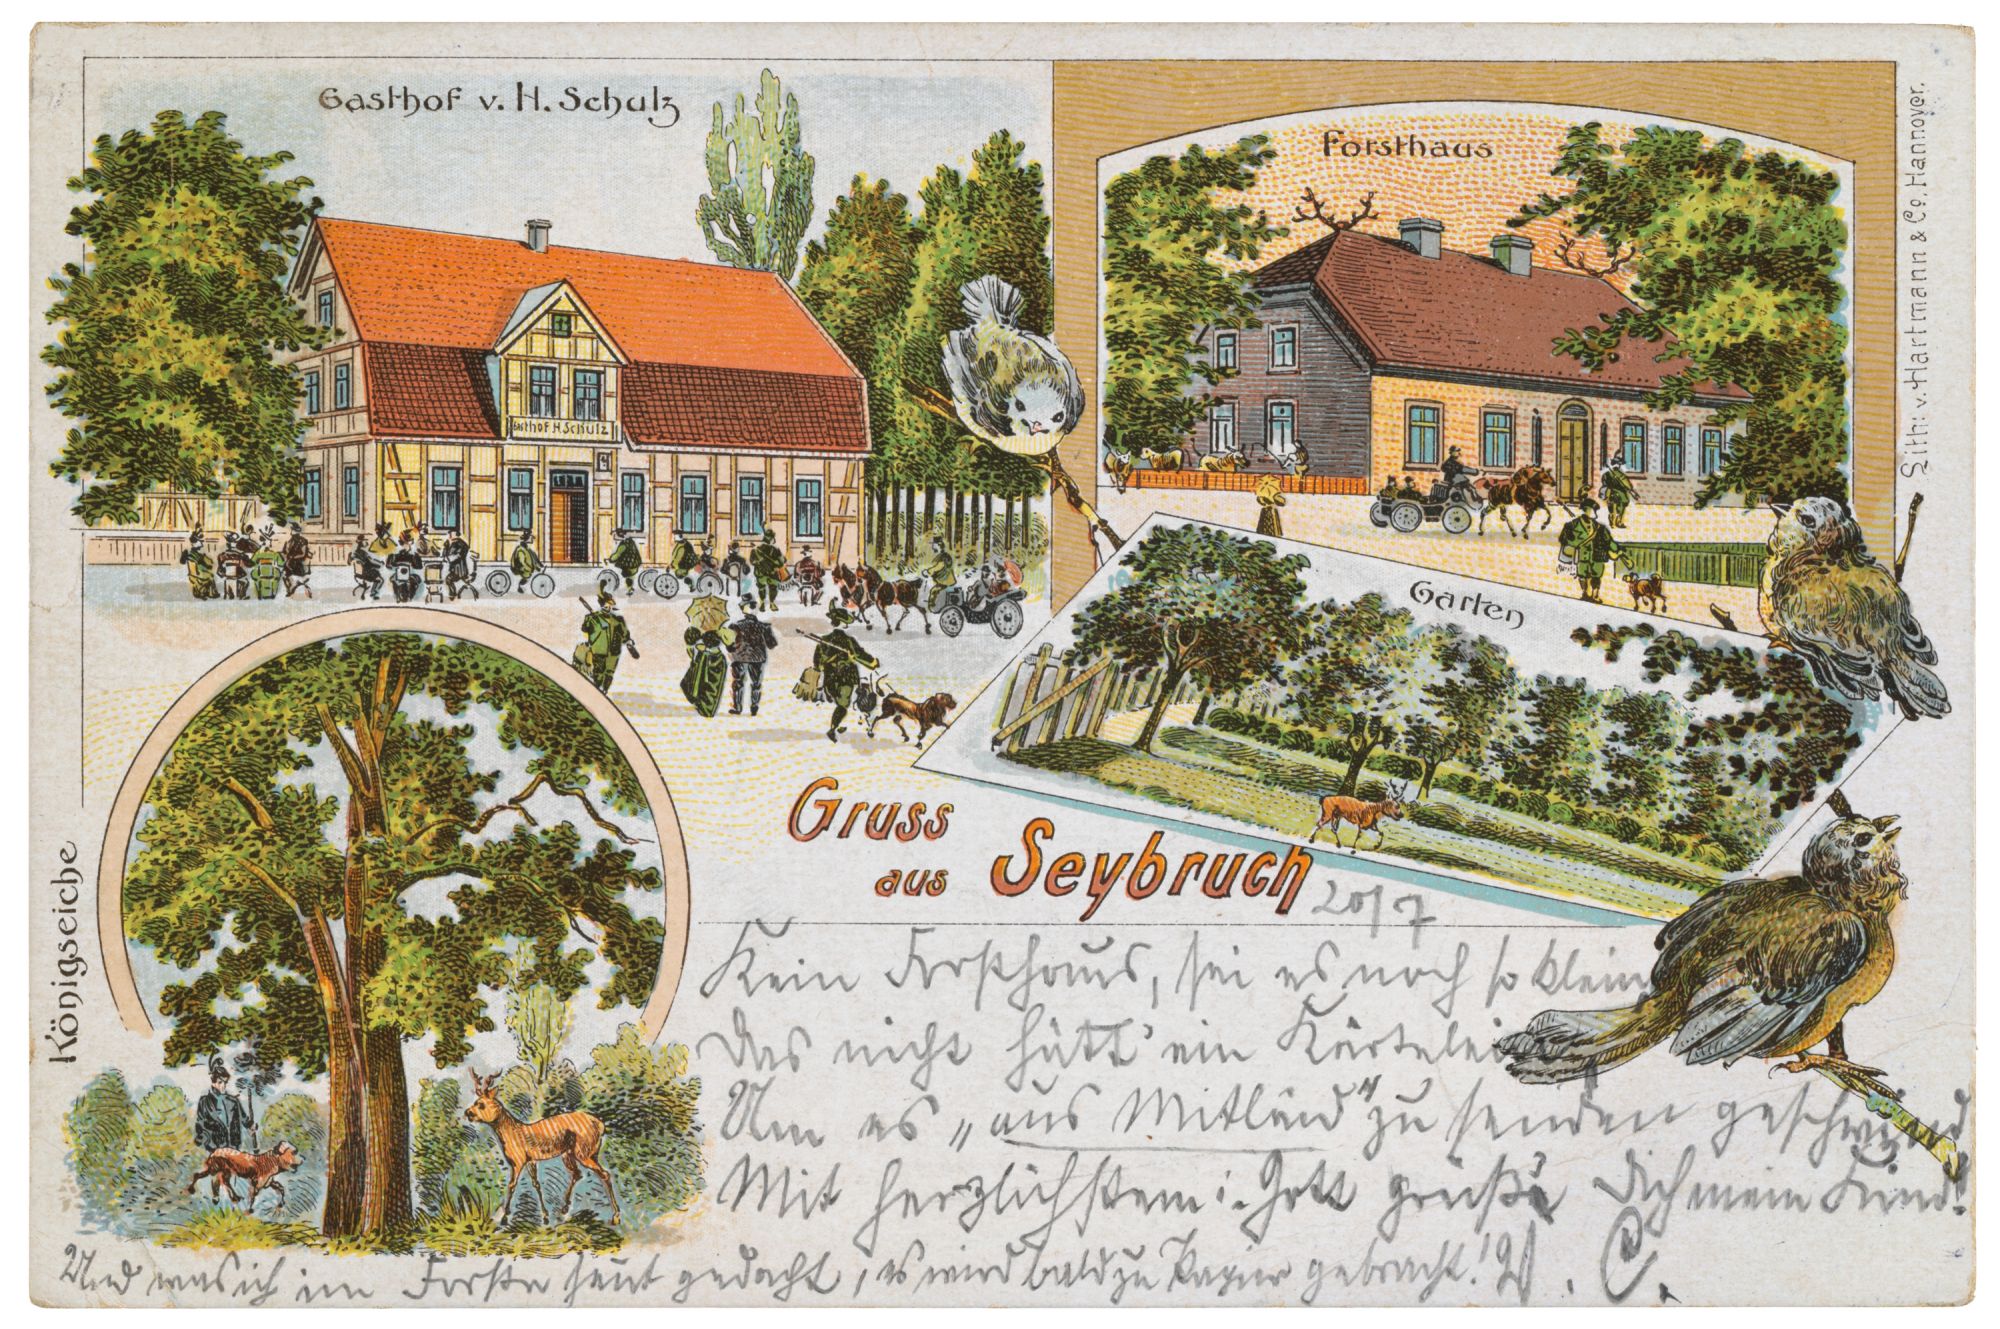 Gasthof v. H. Schulz
Forsthaus
Lith. v. Hartmann & Co. Hannover.
Gasthof H. Schulz
Garten
Königseiche
Gruss
aus Seybruch
20/7
Kein Forsthaus, sei es noch so klein
Das nicht hätt' ein Kärtelein
Um es „aus Mitleid" zu senden geschwind
Mit herzlichstem i. Gott grüß' Dich mein Kind!
Und was ich im Forste heut gedacht, es wird bald zu Papier gebracht!